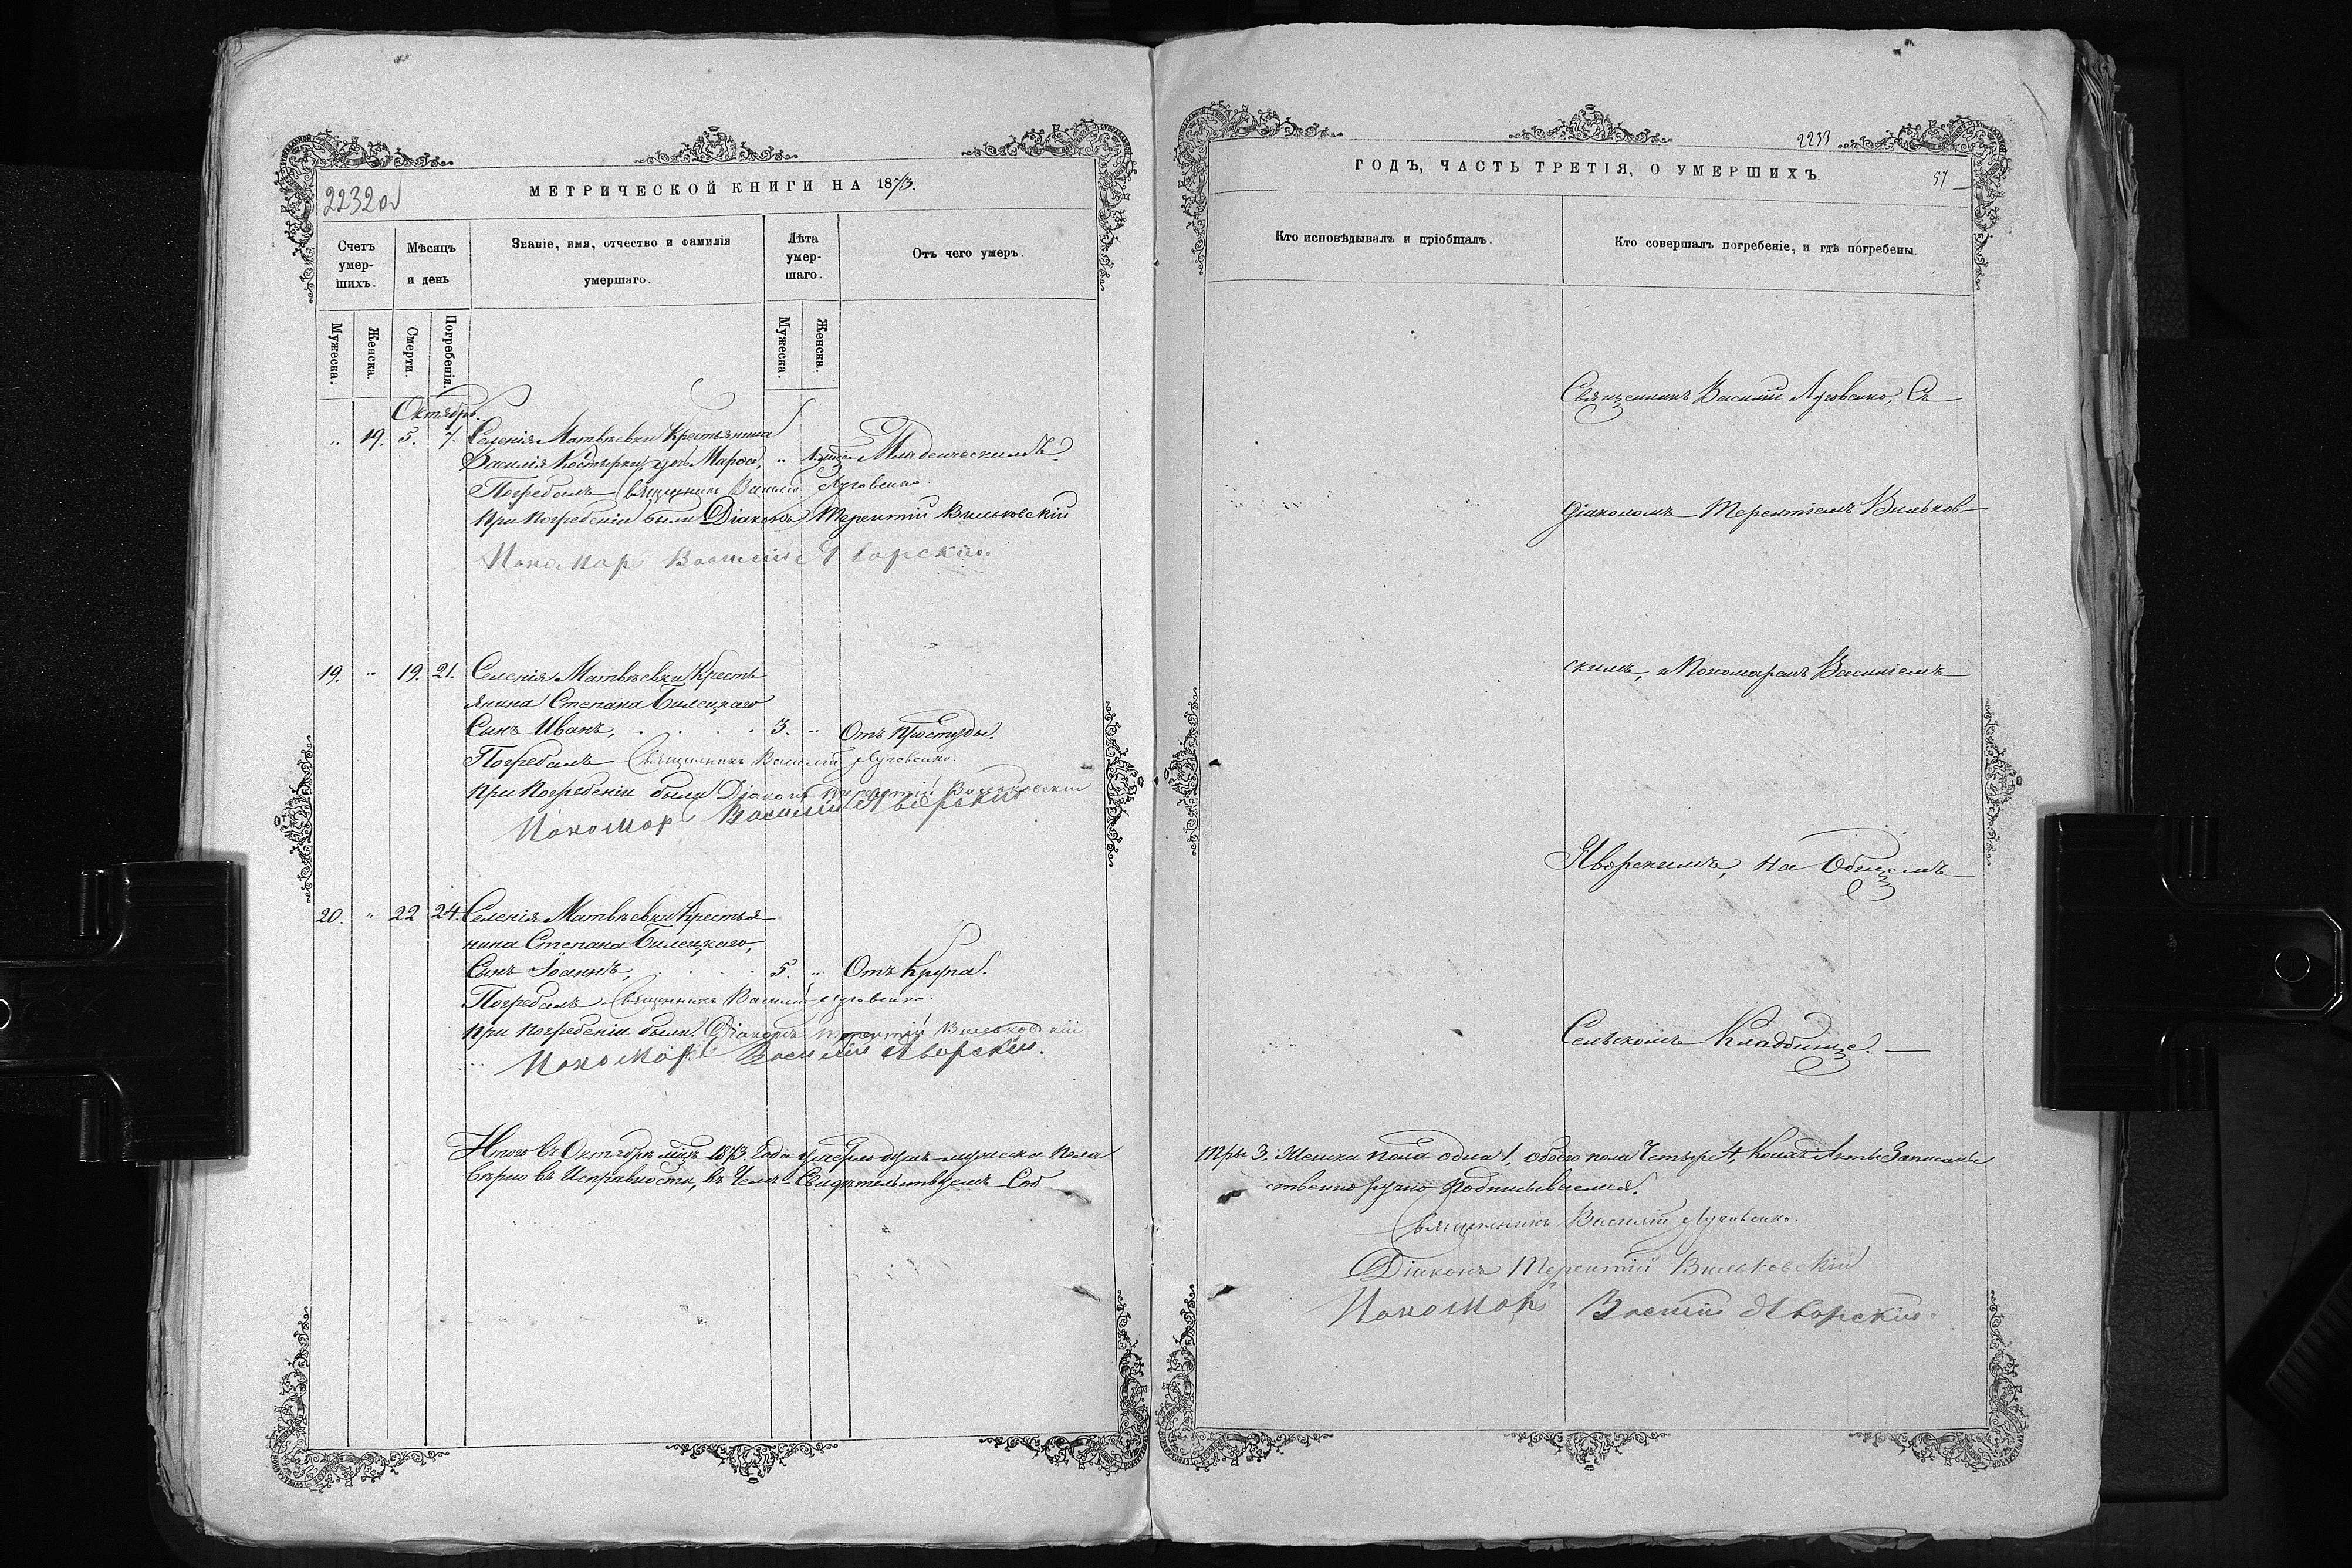 2232об
МЕТРИЧЕСКОЙ КНИГИ НА 1873.
Счетъ умер-шихъ.
Мѣсяцъ и день
Званіе, имя, отчество и фамилія умершаго.
Лѣта умер-шаго.
Отъ чего умеръ.
Мужеска.
Женска.
Смерти.
Погребенія.
Мужеска.
Женска.
Октябрь.
„ 19. 5. 7. Селенія Матвѣевки Крестьянина
Василія Костырки, дочь „ Младенческимъ.
Погребалъ Священникъ Василій Луговенко.
При Погребеніи были Діаконъ Терентій Вильковскій
Пономарь Василій Яворскій.
19. „ 19. 21. Селенія Матвѣевки Кресть
янина Степана Билецкаго
Сынъ Иванъ, . . . . 3. „ Отъ Простуды.
Погребалъ Священникъ Василій Луговенко.
При Погребеніи были Діаконъ Терентій Вильковскій
Пономарь Василій Яворскій
20. „ 22 24. Селенія Матвѣевки Крестья-
нина Степана Билецкаго,
Сынъ Іоаннъ, . . . . 5. „ Отъ Крупа.
Погребалъ Священникъ Василій Луговенко.
При погребеніи были Діаконъ Терентій Вильковскій
Пономарь Василій Яворскій.
Итого въ Октябрѣ мцѣ 1873. Года умерло душъ мужеска пола
вѣрно въ Исправности, въ Чемъ Свидѣтельствуемъ Соб
2233
ГОДЪ, ЧАСТЬ ТРЕТІЯ, О УМЕРШИХЪ
57
Кто исповѣдывалъ и пріобщалъ.
Кто совершалъ погребеніе, и гдѣ погребены.
Священникъ Василій Луговенко, Съ
діакономъ Терентіемъ Вильков-
скимъ, и Пономаремъ Василіемъ
Яворскимъ, на Общемъ
Сельскомъ Кладбище. —
три 3. Женска пола одна 1, обоего пола Четыре 4, Акты Записаны
ственно ручно Подписываемся.
Священникъ Василій Луговенко.
Діаконъ Терентій Вильковскій
Пономарь Василій Яворскій.